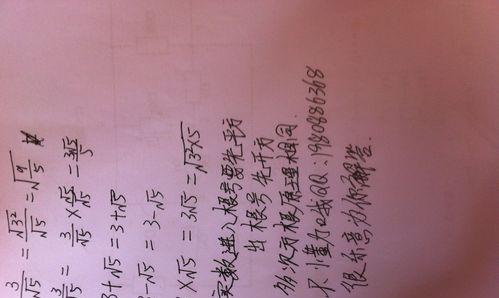 3/√5 = √3²/√5 = √(9/5)
3/√5 = 3/√5 × √5/√5 = 3√5/5
3+√5 = 3+√5
3-√5 = 3-√5
× √5 = 3√5 = √(3²×5)
实数进入根号要先平方
出根号先开方
多次方根原理相同.
不懂力口我QQ:1980886368
很乐高为你解答.